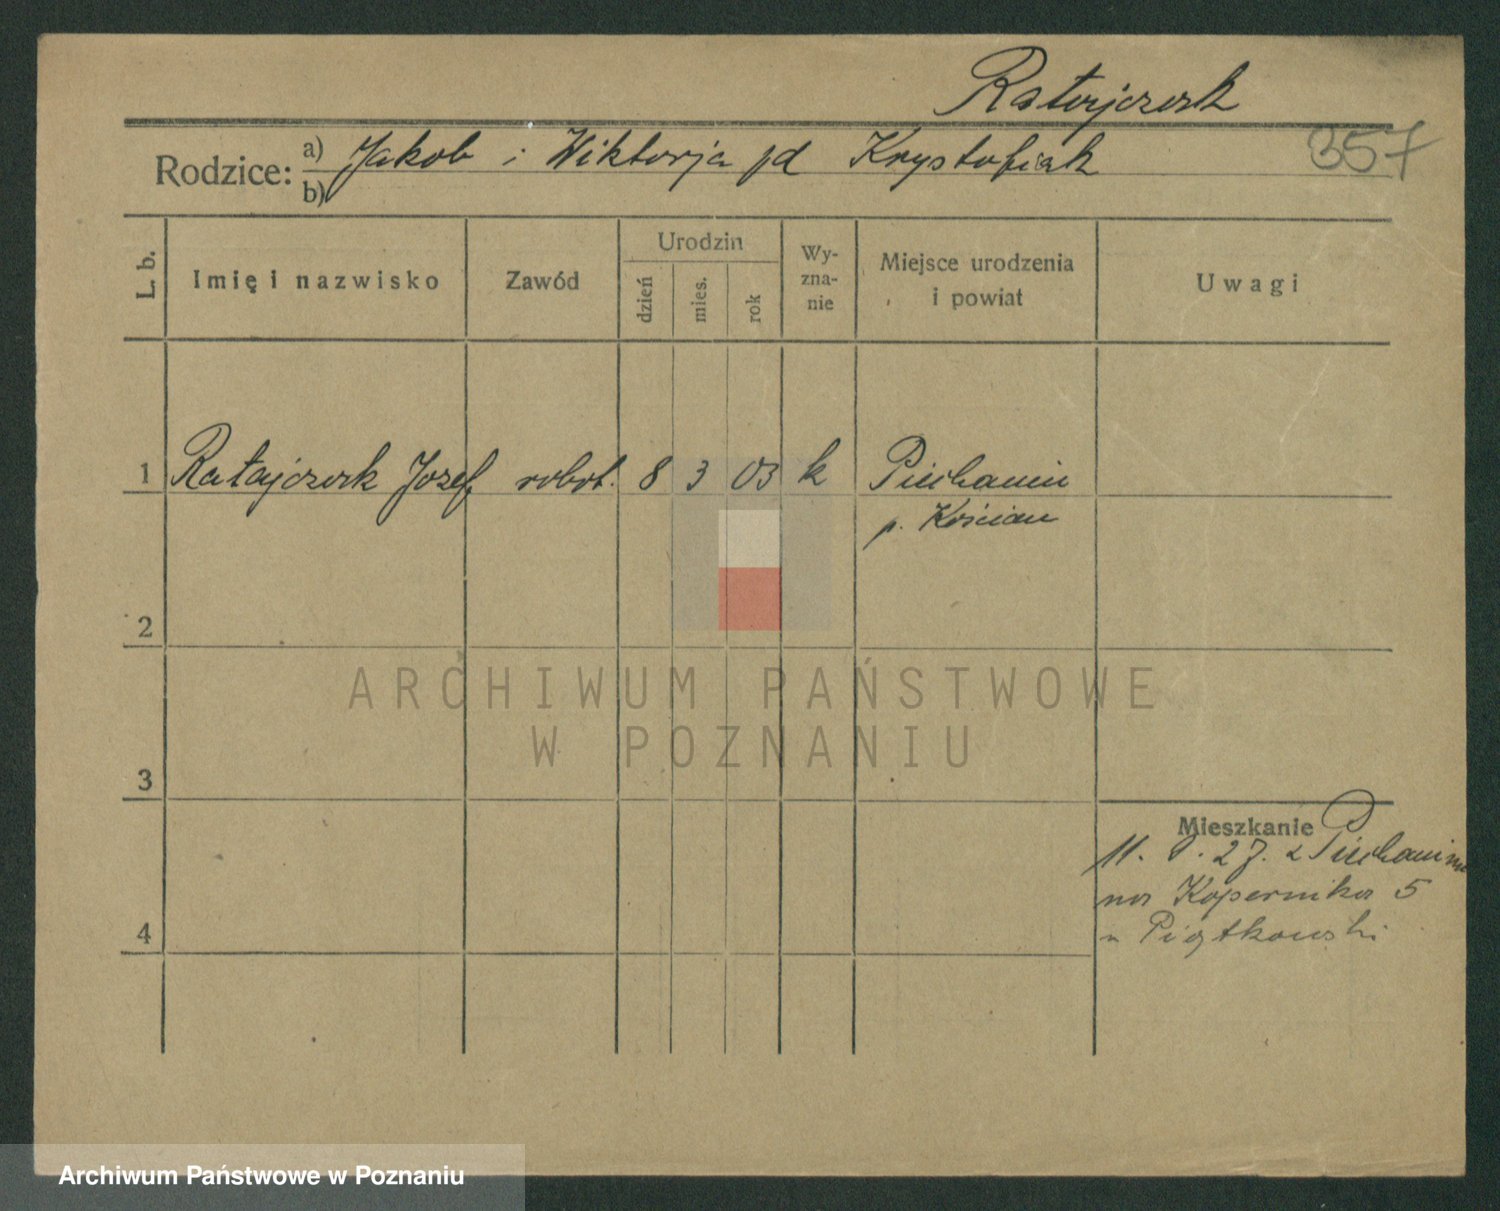 Ratajczak
Rodzice: a) Jakob i Wiktorja z d Krystofiak
b)
357
L. b.
Imię i nazwisko
Zawód
Urodzin
dzień
mies.
rok
Wy-
zna-
nie
Miejsce urodzenia
i powiat
Uwagi
1 Ratajczak Jozef robot. 8 3 03 k Piechanin
p. Kościan
2
ARCHIWUM PAŃSTWOWE
W POZNANIU
3
Mieszkanie
11. 27. z Piechanina
na Kopernika 5
u Piątkowski
4
Archiwum Państwowe w Poznaniu